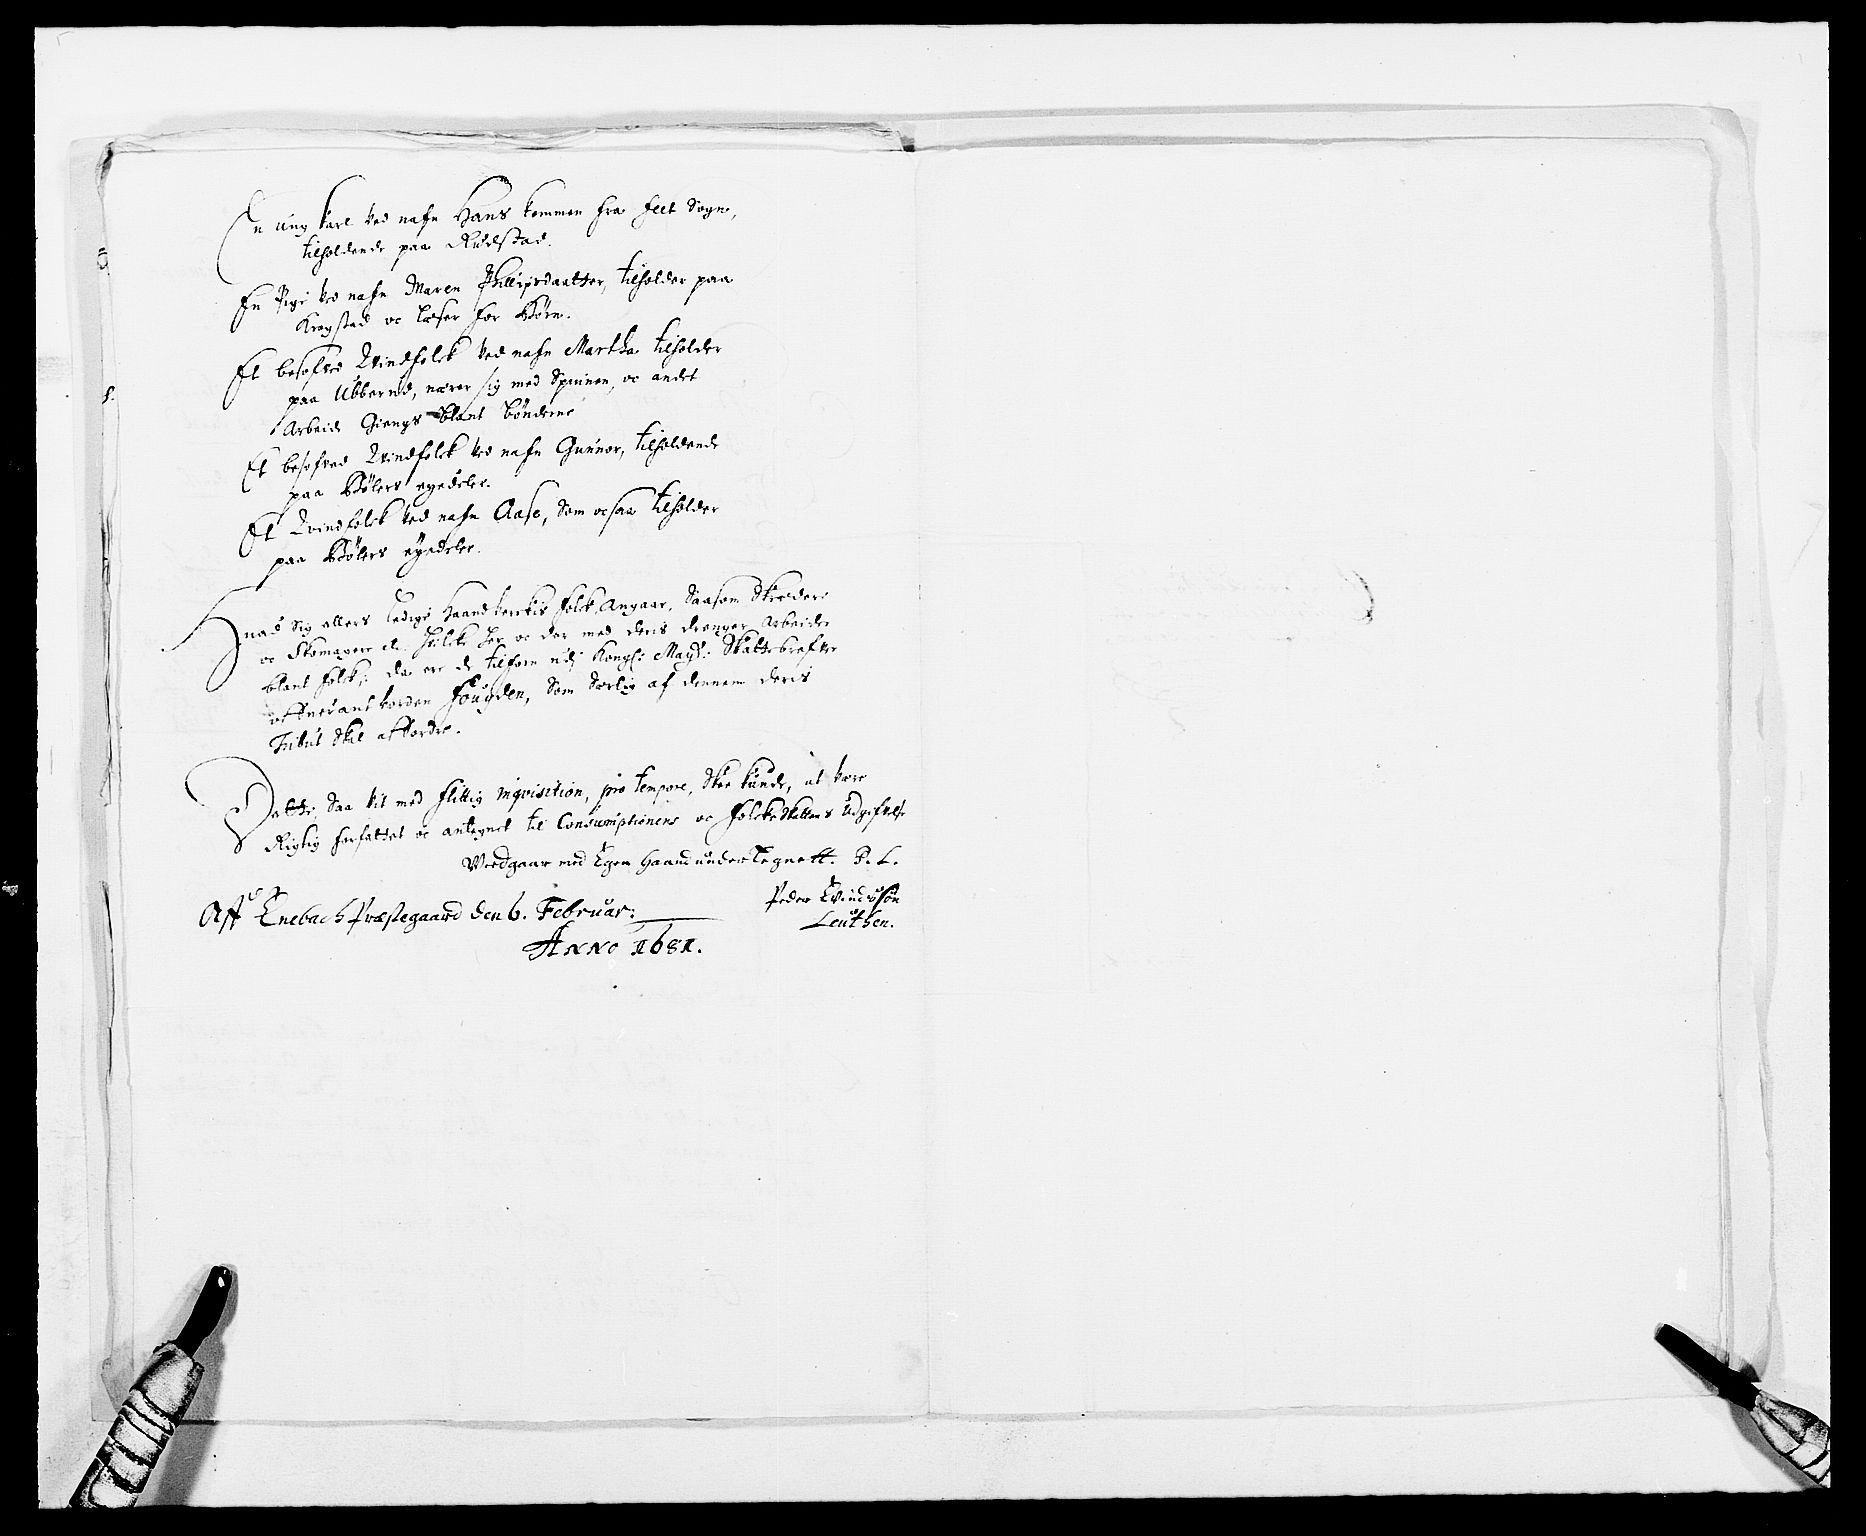 En ung karl ved nafn Hans kommen fra feet Sogn,
tilholdende paa Rudstad.
En Pige ved nafn Maren Phillipsdaatter, tilholder paa
Kragstad oc læser for Børn.
Et besofved Qvindfolck ved nafn Martha tilholder
paa Ubberud, nærer sig med Spinnen, oc andet
Arbeide Giengs blant bønderne
Et besofved Qvindfolck ved nafn Gunnor, tilholdende
paa Bølers eyedeler.
Et Qvindfolck ved nafn Aase, som ocsaa tilholder
paa Bølers eyedeler.
Hvad sig ellers ledige Haandverckis folck angaar, Saasom Skrædere
oc Skomagere etc. hvilcke her oc der med deris drenger arbeider
blant folck, da ere de tilforn udj Kongl: Mayts: Skattebrefver
offverantvorden fougden, som Særlig af dennem deris
Tribut Skal affordre.
Dette, Saa vit med flittig inqvisition, pro tempore, Skee kunde, at være
Rigtig forfattet oc antegnet til Consumptionens oc folcke Skattens Udgifvelse
Vredgaar med Egen Haand under Tegnett. P. L.
Aff Enebach Præstegaard den 6. Februar: Peder Evindsøn
Anno 1681. Leuthen.